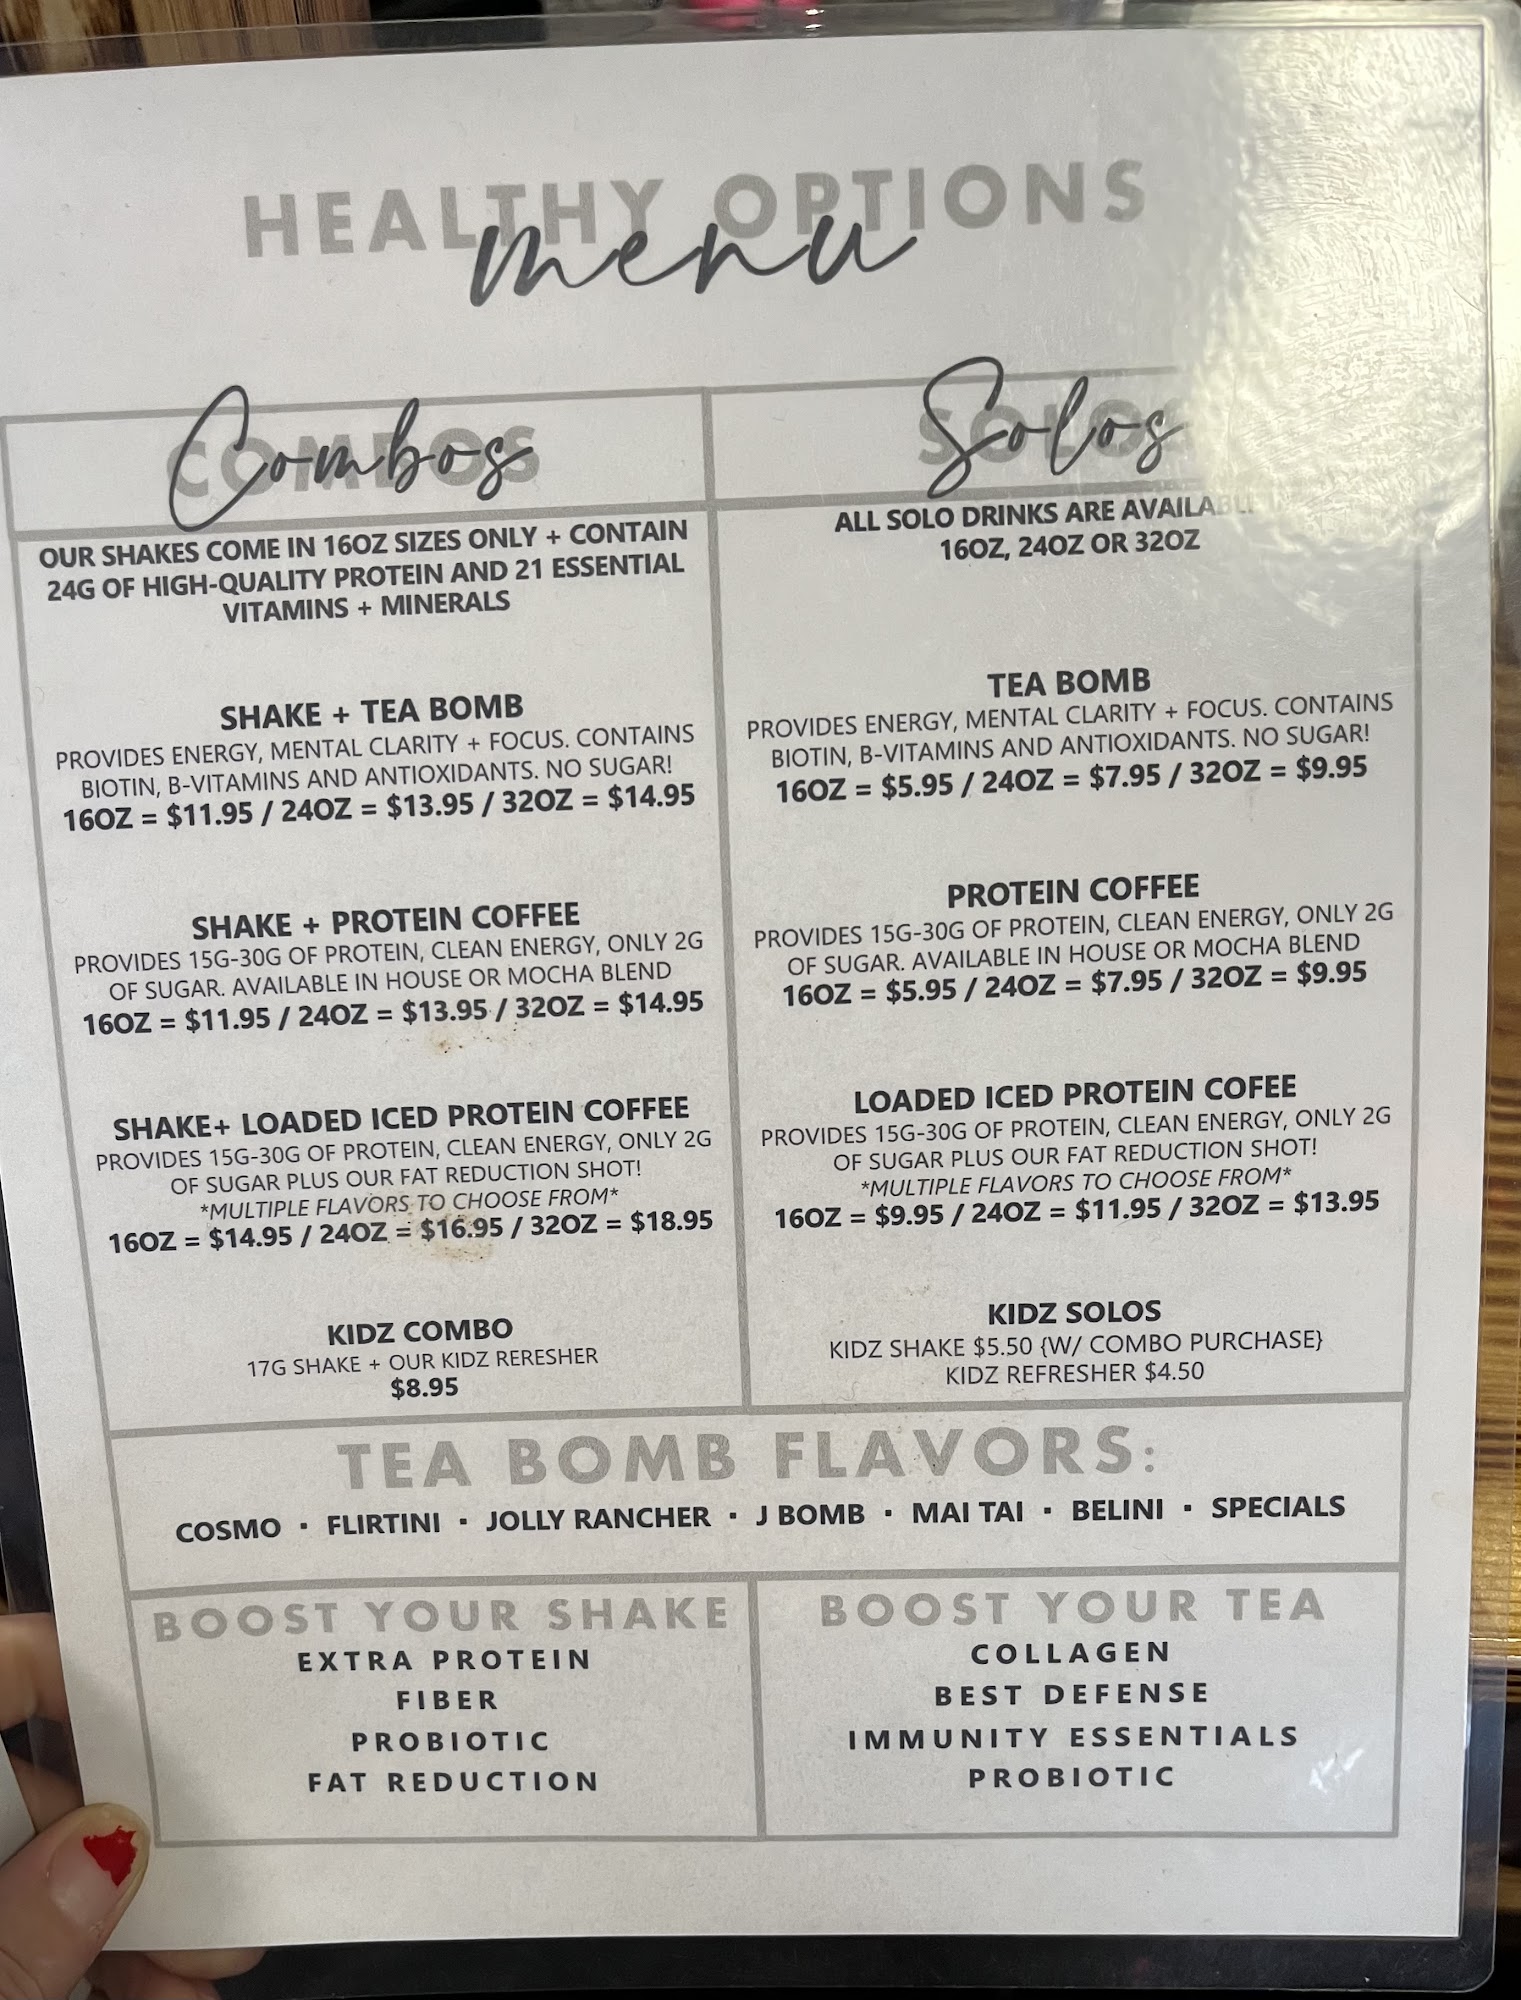 HEALTHY OPTIONS
menu
COMBOS
Combos
OUR SHAKES COME IN 16OZ SIZES ONLY + CONTAIN
24G OF HIGH-QUALITY PROTEIN AND 21 ESSENTIAL
VITAMINS + MINERALS
SHAKE + TEA BOMB
PROVIDES ENERGY, MENTAL CLARITY + FOCUS. CONTAINS
BIOTIN, B-VITAMINS AND ANTIOXIDANTS. NO SUGAR!
16OZ = $11.95 / 24OZ = $13.95 / 32OZ = $14.95
SHAKE + PROTEIN COFFEE
PROVIDES 15G-30G OF PROTEIN, CLEAN ENERGY, ONLY 2G
OF SUGAR. AVAILABLE IN HOUSE OR MOCHA BLEND
16OZ = $11.95 / 24OZ = $13.95 / 32OZ = $14.95
SHAKE+ LOADED ICED PROTEIN COFFEE
PROVIDES 15G-30G OF PROTEIN, CLEAN ENERGY, ONLY 2G
OF SUGAR PLUS OUR FAT REDUCTION SHOT!
*MULTIPLE FLAVORS TO CHOOSE FROM*
16OZ = $14.95 / 24OZ = $16.95 / 32OZ = $18.95
KIDZ COMBO
17G SHAKE + OUR KIDZ RERESHER
$8.95
SOLOS
Solos
ALL SOLO DRINKS ARE AVAILABLE
16OZ, 24OZ OR 32OZ
TEA BOMB
PROVIDES ENERGY, MENTAL CLARITY + FOCUS. CONTAINS
BIOTIN, B-VITAMINS AND ANTIOXIDANTS. NO SUGAR!
16OZ = $5.95 / 24OZ = $7.95 / 32OZ = $9.95
PROTEIN COFFEE
PROVIDES 15G-30G OF PROTEIN, CLEAN ENERGY, ONLY 2G
OF SUGAR. AVAILABLE IN HOUSE OR MOCHA BLEND
16OZ = $5.95 / 24OZ = $7.95 / 32OZ = $9.95
LOADED ICED PROTEIN COFEE
PROVIDES 15G-30G OF PROTEIN, CLEAN ENERGY, ONLY 2G
OF SUGAR PLUS OUR FAT REDUCTION SHOT!
*MULTIPLE FLAVORS TO CHOOSE FROM*
16OZ = $9.95 / 24OZ = $11.95 / 32OZ = $13.95
KIDZ SOLOS
KIDZ SHAKE $5.50 {W/ COMBO PURCHASE}
KIDZ REFRESHER $4.50
TEA BOMB FLAVORS:
COSMO · FLIRTINI · JOLLY RANCHER · J BOMB · MAI TAI · BELINI · SPECIALS
BOOST YOUR SHAKE
EXTRA PROTEIN
FIBER
PROBIOTIC
FAT REDUCTION
BOOST YOUR TEA
COLLAGEN
BEST DEFENSE
IMMUNITY ESSENTIALS
PROBIOTIC